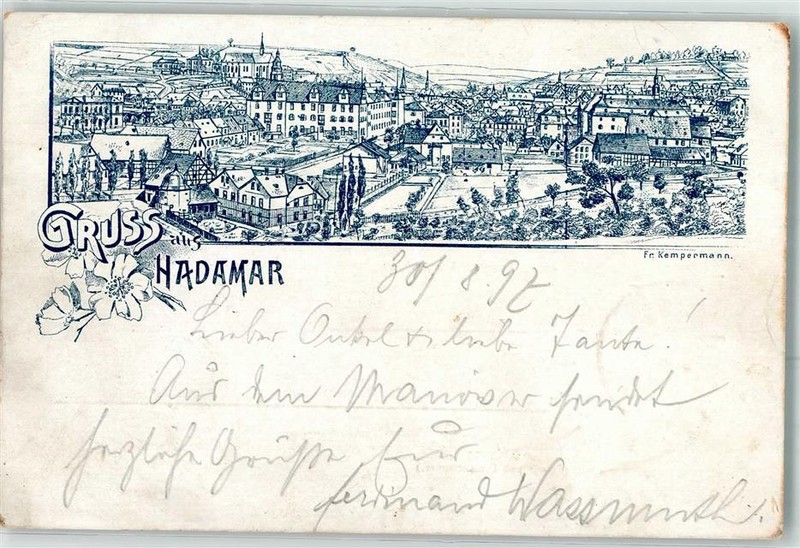 GRUSS
aus
HADAMAR
Fr. Kempermann.
30/8.97
Lieber Onkel & liebe Tante!
Aus dem Manöver sendet
herzliche Grüße Euer
Ferdinand Wassmuth.